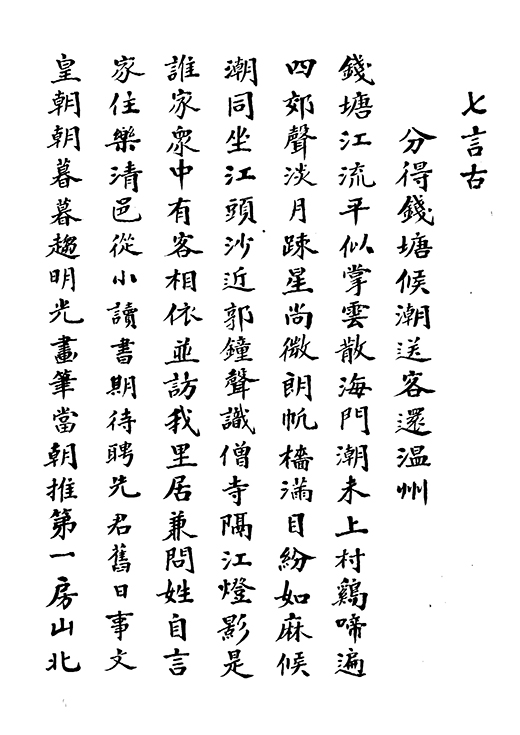 七言古
分得錢塘候潮送客還温州
錢塘江流平似掌雲散海門潮未上村鷄啼遍
四郊聲淡月踈星尚微朗帆檣滿目紛如麻候
潮同坐江頭沙近郭鐘聲識僧寺隔江燈影是
誰家衆中有客相依並訪我里居兼問姓自言
家住樂清邑從小讀書期待聘先君舊日事文
皇朝朝暮暮趨明光畫筆當朝推第一房山北